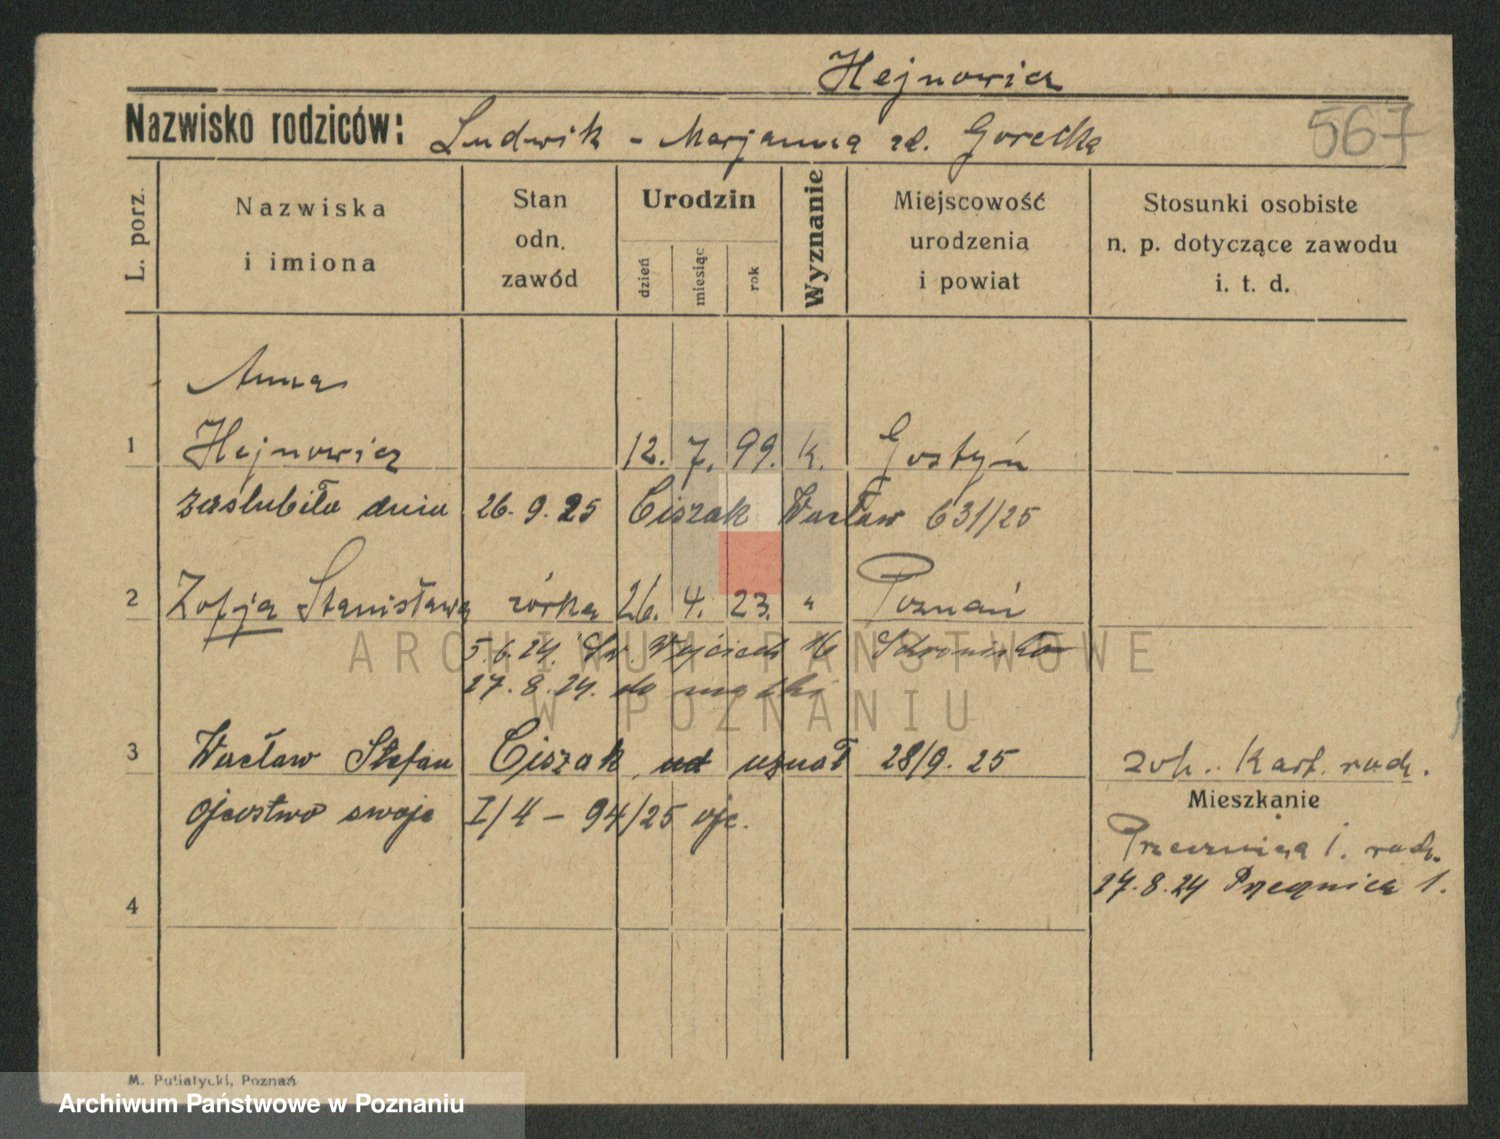 Hejnowicz
Nazwisko rodziców: Ludwik - Marjanna zd. Gorecka
567
L. porz.
Nazwiska
i imiona
Stan
odn.
zawód
Urodzin
dzień
miesiąc
rok
Wyznanie
Miejscowość
urodzenia
i powiat
Stosunki osobiste
n. p. dotyczące zawodu
i. t. d.
Anna
1 Hejnowicz 12. 7. 99. k. Gostyń
zaślubiła dnia 26. 9. 25 Ciszak Wacław 631/25
2 Zofja Stanisława córka 26. 4. 23. " Poznań
5.6.24. Św. Wojciech 16 Schronisko
27.8.24. do matki
3 Wacław Stefan Ciszak uznał 28/9. 25 zob. Kart. rodz.
ojcostwo swoje I/4 - 94/25 ojc.
Mieszkanie
Przecznica 1. rodz.
27.8.24 Przecznica 1.
4
ARCHIWUM PAŃSTWOWE
W POZNANIU
M. Putiatycki, Poznań
Archiwum Państwowe w Poznaniu